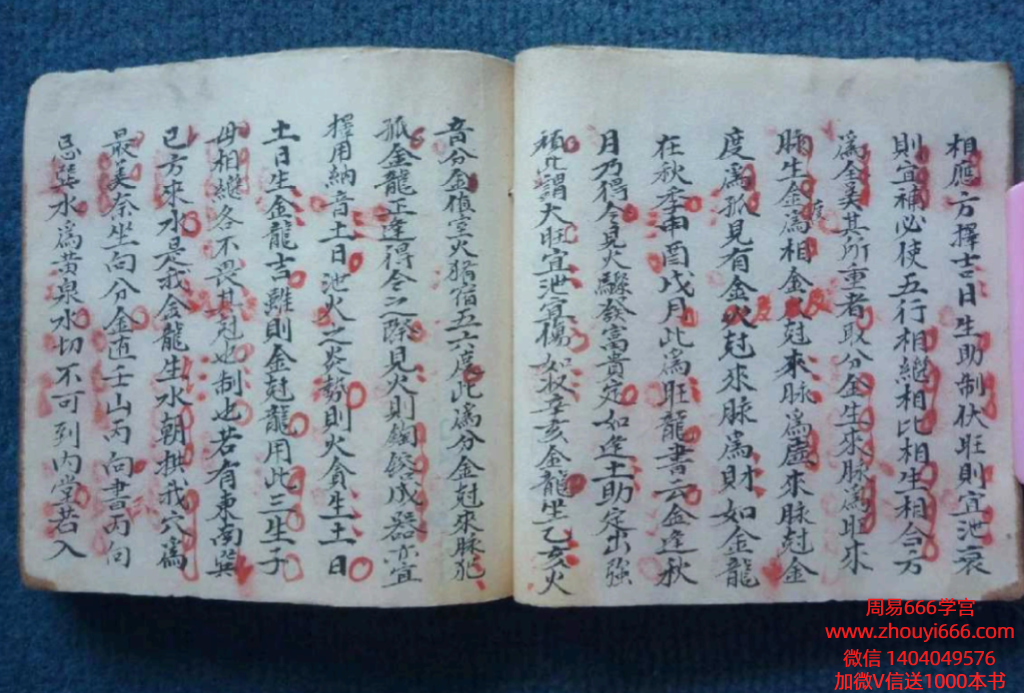 相應方擇吉日生助制伏旺則宜泄衰
則宜補必使五行相繼相比相生相合方
為全美其所重者取分金生來脉為旺來
脉生金為相金尅來脉為虛來脉尅金
度為孤見有金火尅來脉為財如金龍
在秋季申酉戌月此為旺龍書云金逢秋
月乃得令見火驟發富貴定如逢土助定出強
頑此謂大旺宜泄宜傷如收辛亥金龍坐乙亥火
音分金値室火猪宿五六度此為分金尅來脉犯
孤金龍正逢得令之際見火則銅鉄成器亦宜
擇用納音土日泄火之炎勢則火貪生土日
土日生金龍吉雖則金尅龍用此三生子
母相繼各不畏其尅也制也若有東南巽
巳方來水是我金龍生水朝拱我穴為
最美奈坐向分金直壬山丙向書丙向
忌巽水為黃泉水切不可到内堂若入
周易666学宫
www.zhouyi666.com
微信 1404049576
加微V信送1000本书